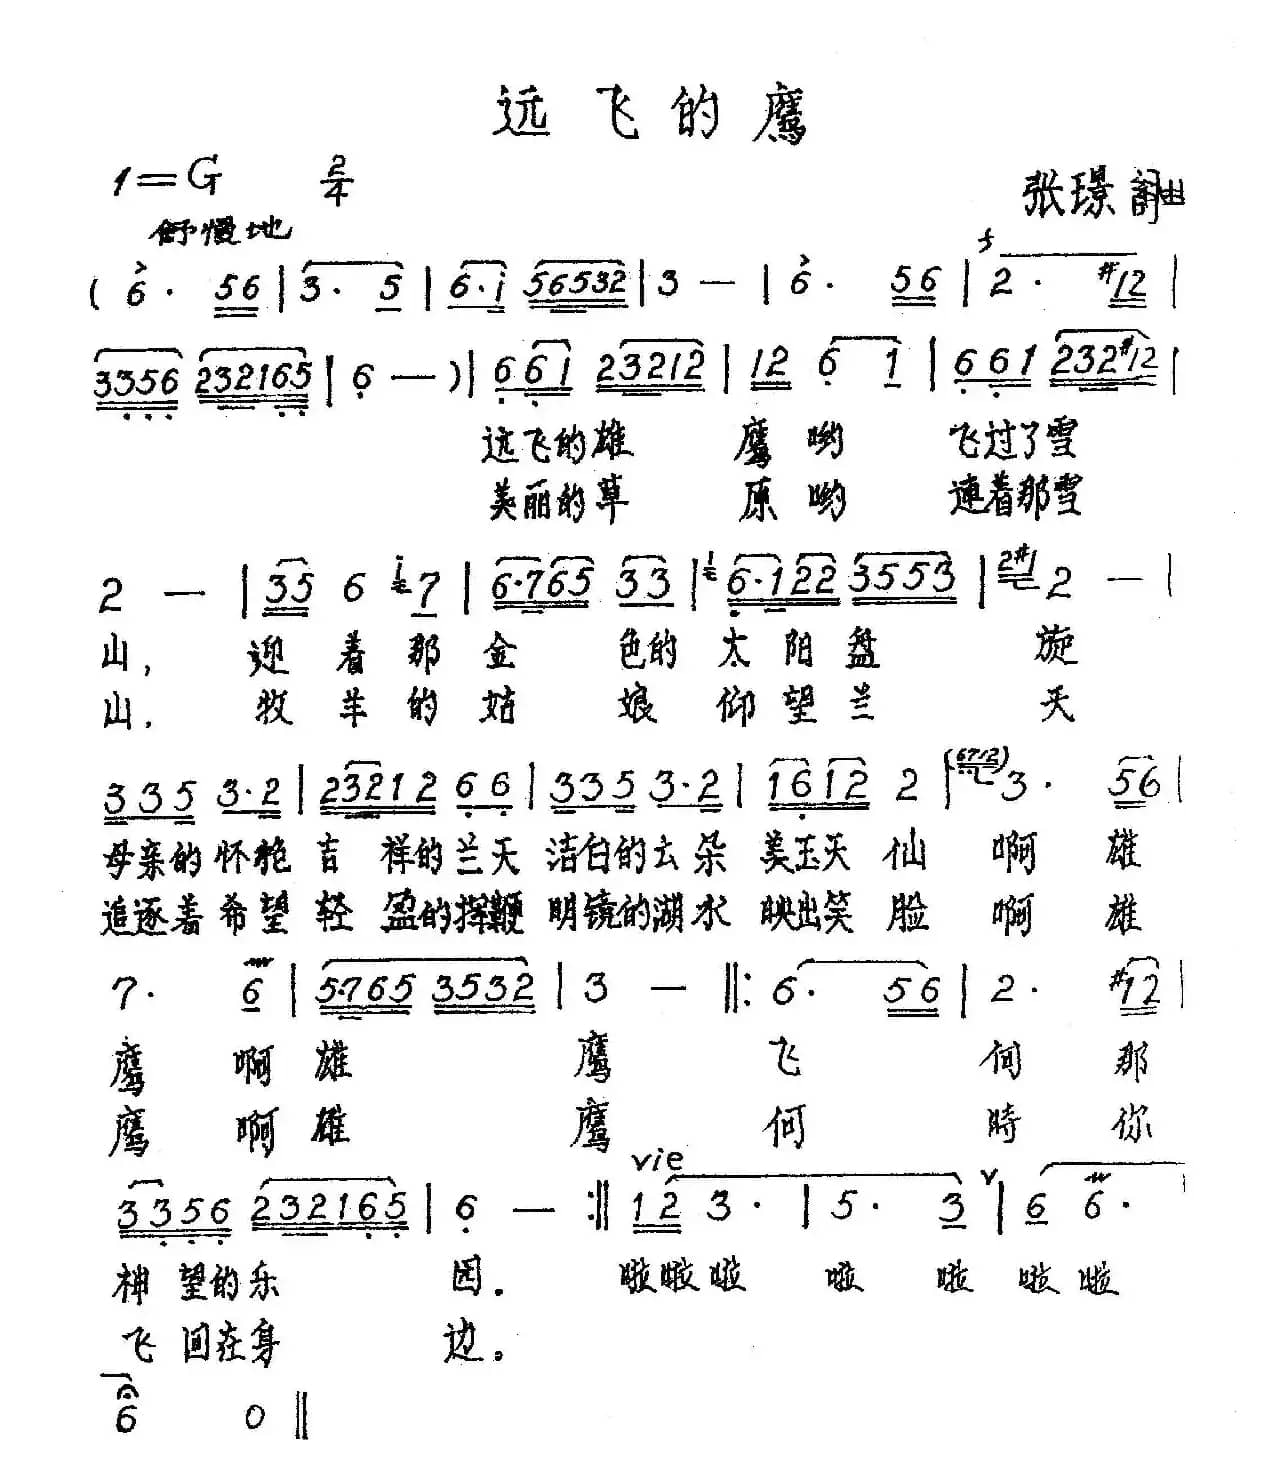 远飞的鹰
1=G 2/4
张璟 詞曲
舒慢地
( 6· 56 | 3· 5 | 6·i 56532 | 3 — | 6· 56 | 2· #12 |
3356 232165 | 6 — ) | 661 23212 | 12 6 1 | 661 232#12 |
远飞的雄 鹰 哟 飞过了雪
美丽的草 原 哟 連着那雪
2 — | 35 6 i 7 | 6·765 33 | 1 6·122 3553 | 2#1 2 — |
山, 迎 着 那 金 色的 太 阳 盘 旋
山. 牧 羊 的 姑 娘 仰 望 兰 天
335 3·2 | 23212 66 | 335 3·2 | 1612 2 | (6712) 3· 56 |
母亲的怀抱 吉 祥的兰天 洁白的云朵 美玉天 仙 啊 雄
追逐着希望 轻 盈的挥鞭 明镜的湖水 映出笑 脸 啊 雄
7· 6 | 5·765 3532 | 3 — ‖: 6· 56 | 2· #12 |
鹰 啊 雄 鹰 飞 向 那
鹰 啊 雄 鹰 何 時 你
vie
3356 232165 | 6 — :‖ 12 3· | 5· 3 V | 6 6· |
神 望的乐 园. 啦啦啦 啦 啦 啦 啦
飞 回在身 边。
6 0 ‖